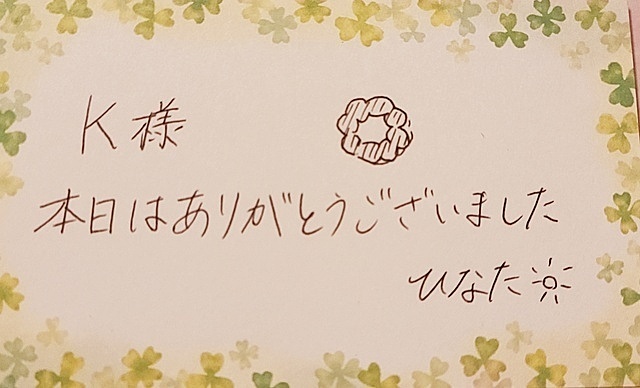 K様
本日はありがとうございました
ひなた